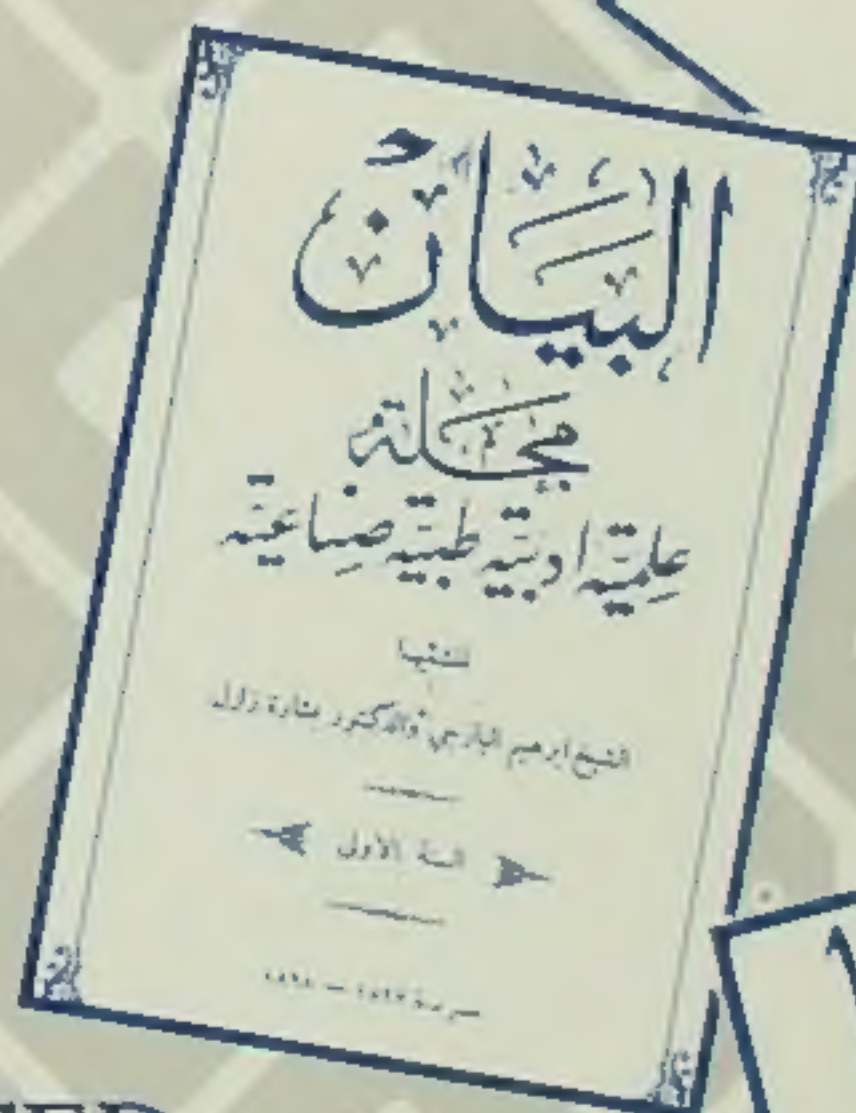 البيان
مجلة
علمية ادبية طبية صناعية
لمنشئيها
الشيخ ابرهيم اليازجي والدكتور بشارة زلزل
السنة الأولى